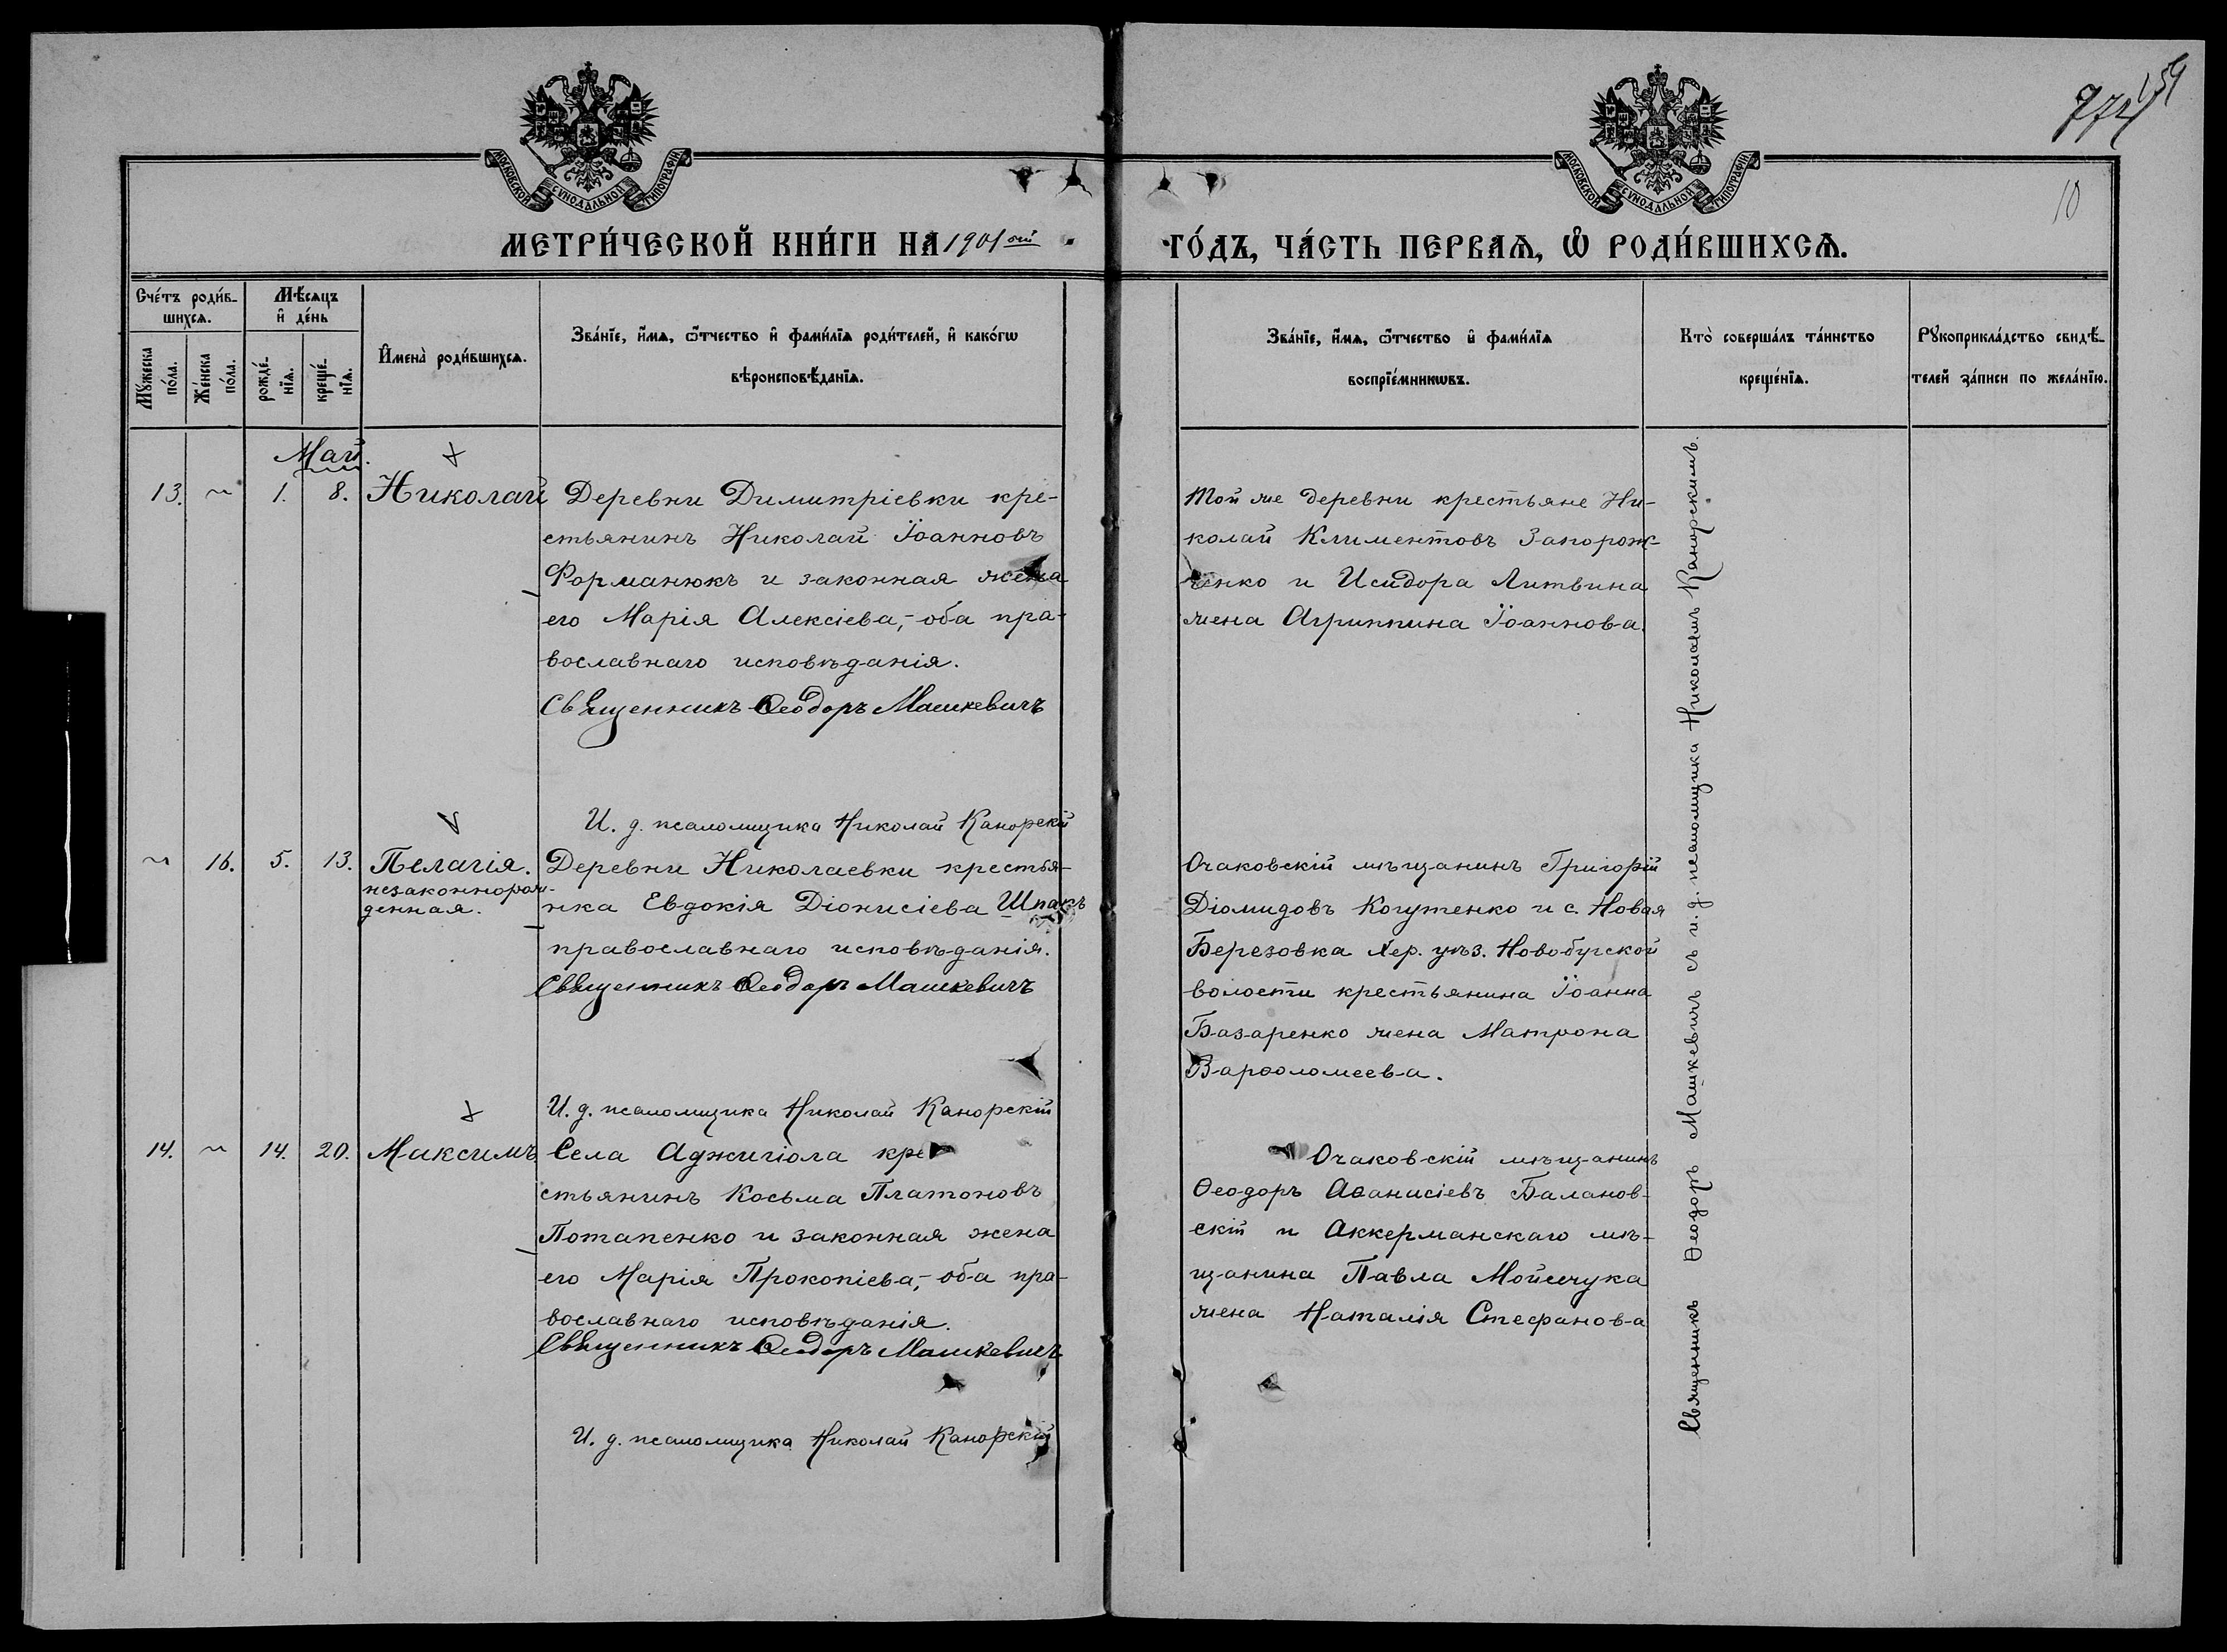 159
774
10
МОСКОВСКОЙ СУНОДАЛЬНОЙ ТИПОГРАФІИ
МОСКОВСКОЙ СУНОДАЛЬНОЙ ТИПОГРАФІИ
МЕТРИ́ЧЕСКОЙ КНИ́ГИ НА 1901 ый
ГО́ДЪ, ЧА́СТЬ ПЕРВАѦ, Ѡ РОДИ́ВШИХСѦ.
Сче́тъ роди́в-
шихсѧ.
Мꙋжеска по́ла.
Же́нска по́ла.
Мѣ́сѧцъ
и҆ де́нь
рожде́-
нїѧ.
креще́-
нїѧ.
И҆мена̀ роди́вшихсѧ.
Зва́нїе, и҆́мѧ, ѻ҆́тчество и҆ фами́лїѧ роди́телей, и҆ како́гѡ
вѣроисповѣ́данїѧ.
Зва́нїе, и҆́мѧ, ѻ҆́тчество и҆ фами́лїѧ
воспрїе́мникѡвъ.
Кто̀ соверша́лъ та́инство
креще́нїѧ.
Рꙋкоприкла́дство свидѣ́-
телей за́писи по жела́нїю.
Май.
13. ~ 1. 8. Николай
Деревни Димитріевки кре-
стьянинъ Николай Іоанновъ
Форманюкъ и законная жена
его Марія Алексіева,- оба пра-
вославнаго исповѣданія.
Священникъ Ѳеодоръ Машкевичъ
И. д. псаломщика Николай Канорскій
Той же деревни крестьяне Ни-
колай Климентовъ Запорож-
ченко и Исидора Литвина
жена Агриппина Іоаннова.
~ 16. 5. 13. Пелагія.
незаконнорож-
денная.
Деревни Николаевки крестья-
нка Евдокія Діонисіева Шпакъ
православнаго исповѣданія.
Священникъ Ѳеодоръ Машкевичъ
И. д. псаломщика Николай Канорскій
Очаковскій мѣщанинъ Григорій
Діомидовъ Когутенко и с. Новая
Березовка Хер. уѣз. Новобугской
волости крестьянина Іоанна
Базаренко жена Матрона
Варѳоломеева.
14. ~ 14. 20. Максимъ
Села Аджигіола кре-
стьянинъ Косьма Платоновъ
Потапенко и законная жена
его Марія Прокопіева,- оба пра-
вославнаго исповѣданія.
Священникъ Ѳеодоръ Машкевичъ
И. д. псаломщика Николай Канорскій
Очаковскій мѣщанинъ
Ѳеодоръ Аѳанасіевъ Баланов-
скій и Аккерманскаго мѣ-
щанина Павла Мойсечука
жена Наталія Стефанова
Священникъ Ѳеодоръ Машкевичъ съ и. д. псаломщика Николаемъ Канорскимъ.